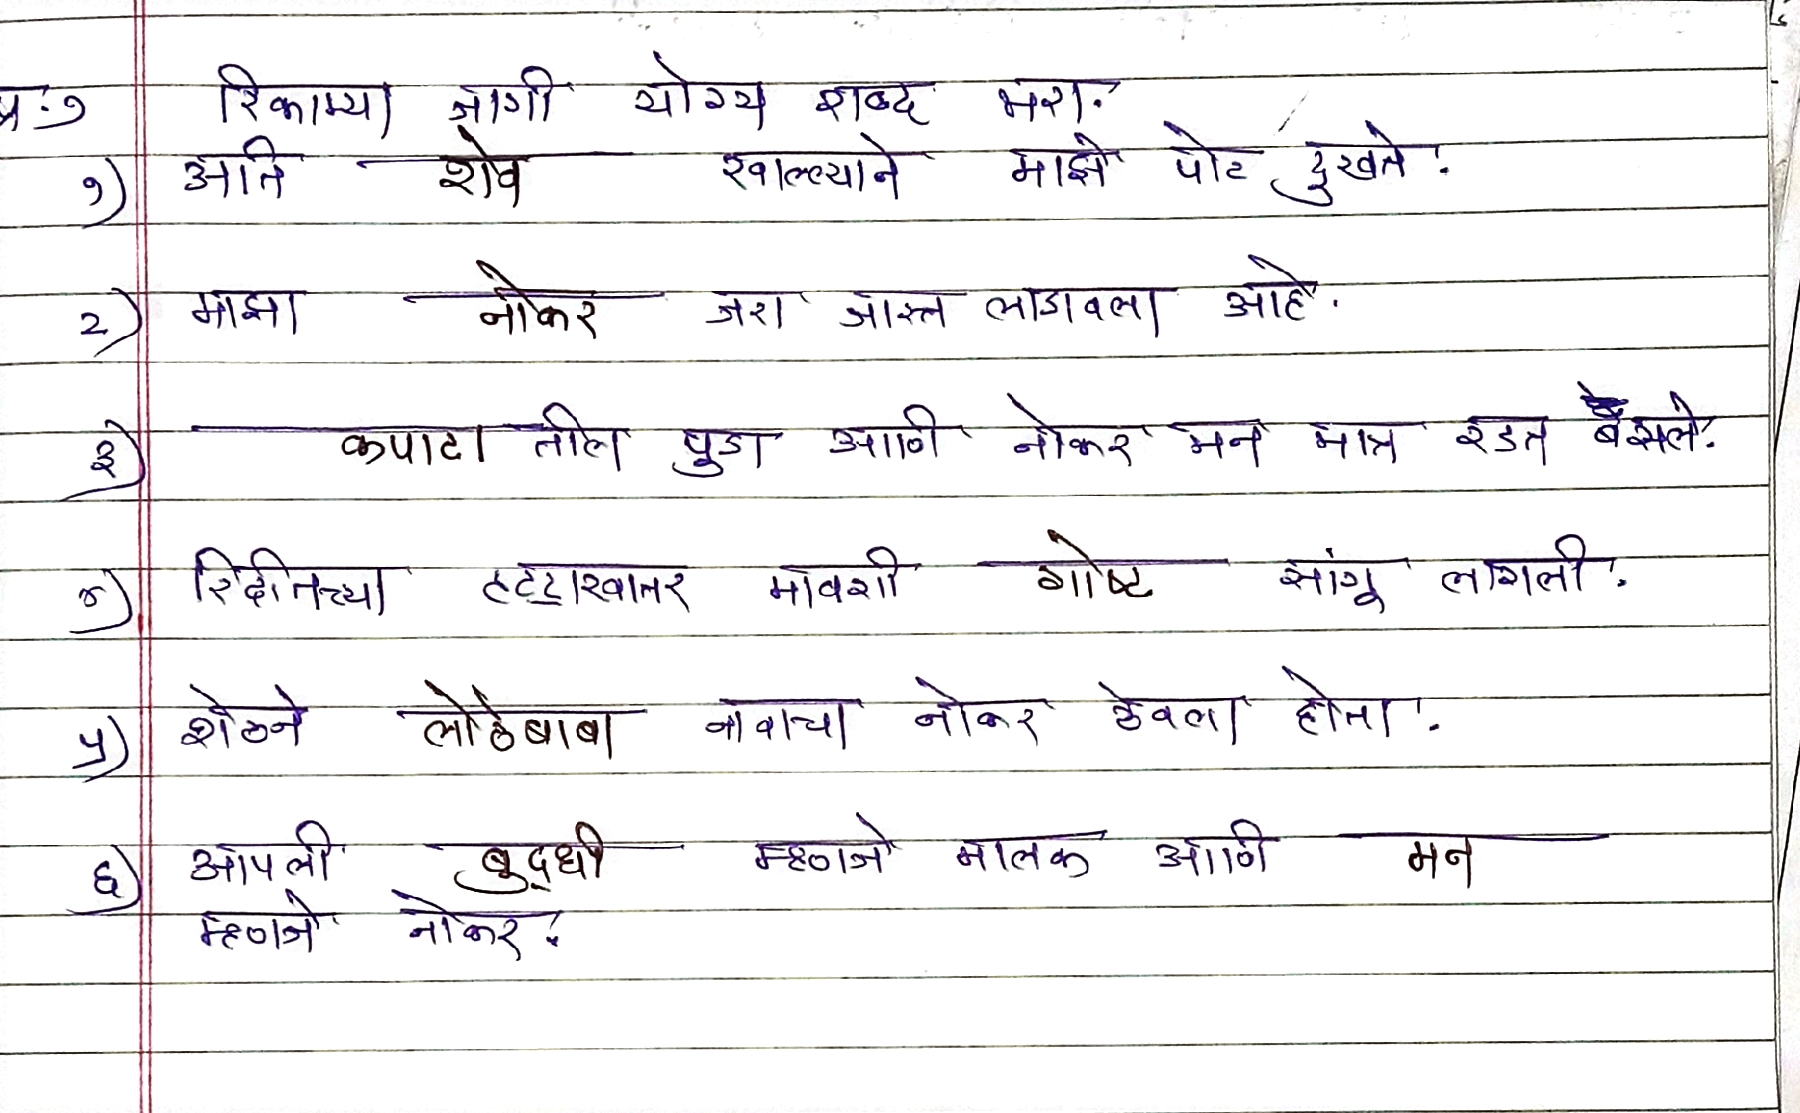 प्र.१ रिकाम्या जागी योग्य शब्द भरा.
१) अति शेव खाल्ल्याने माझे पोट दुखते.
२) माझा नोकर जरा जास्त लाडावला आहे.
३) कपाटा तील पुडा आणि नोकर मन मात्र रडत बसले.
४) रिद्दीतच्या हट्टाखातर मावशी गोष्ट सांगू लागली.
५) शेठने लोठेबाबा नावाचा नोकर ठेवला होता.
६) आपली बुद्धी म्हणजे मालक आणि मन
म्हणजे नोकर.